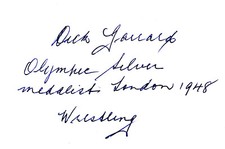 Dick Garrard
Olympic Silver
medalist London 1948
Wrestling